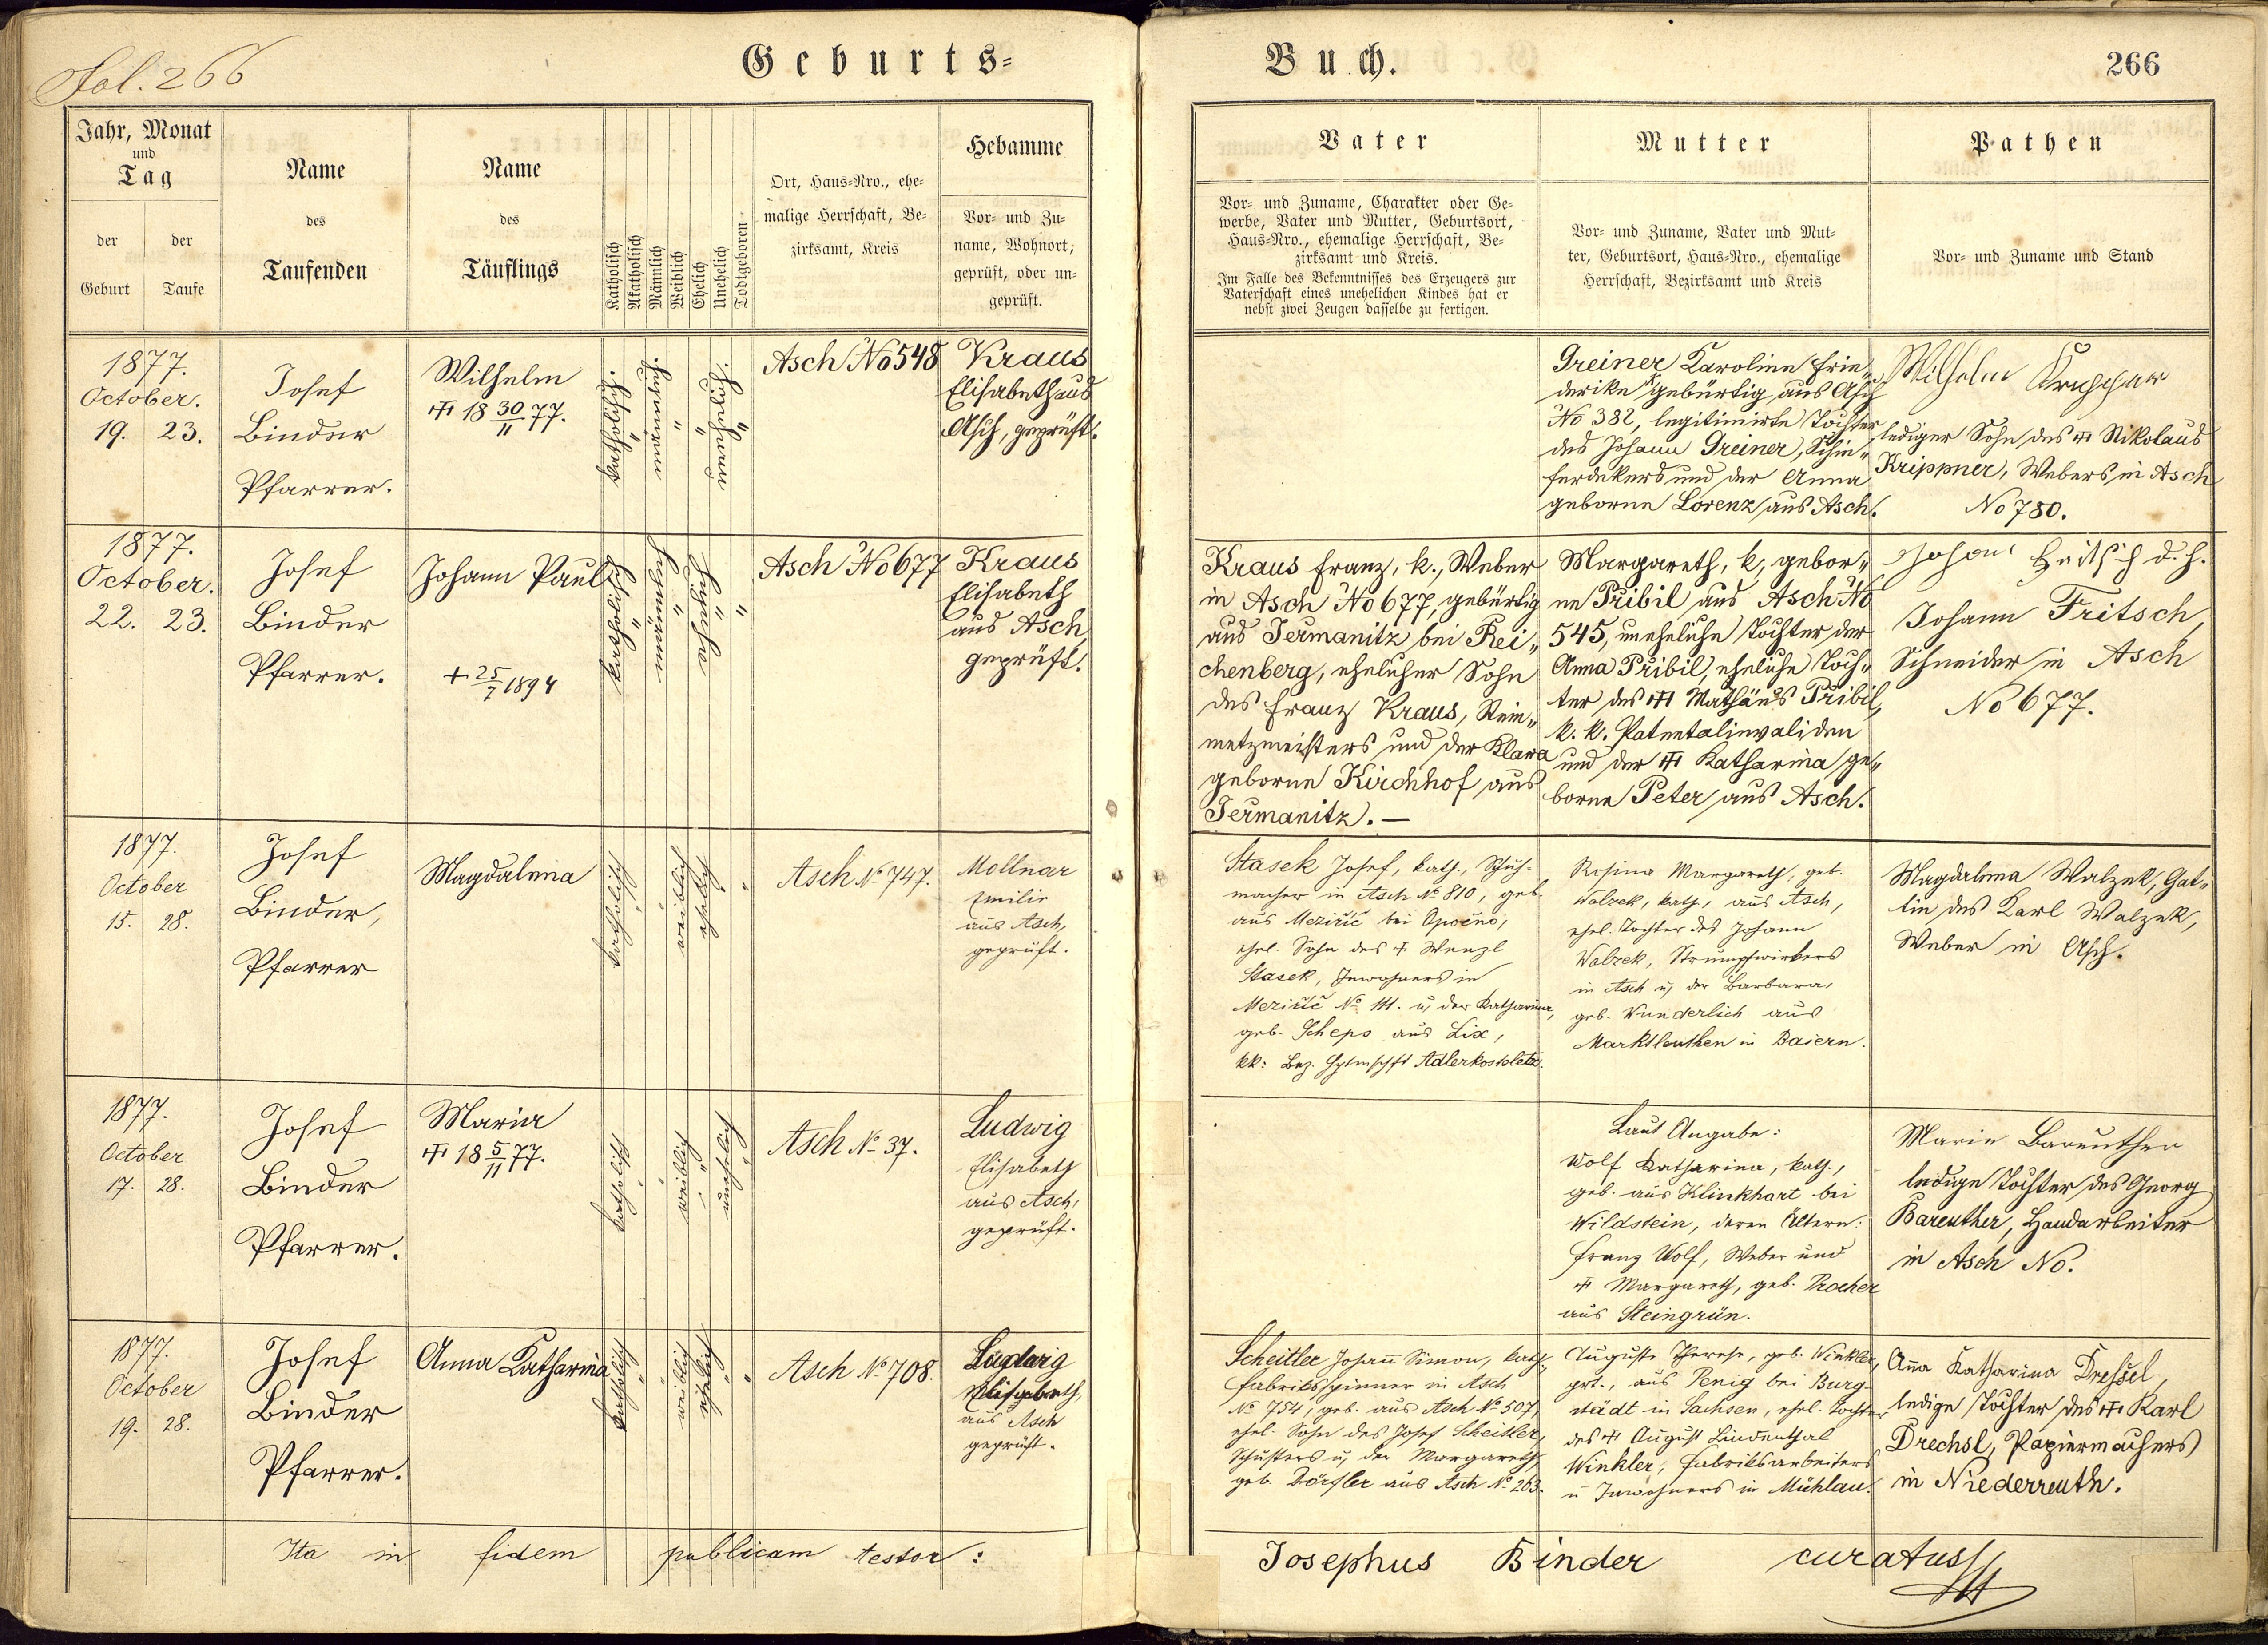 Fol. 266
Geburts-
Jahr, Monat
und
Tag
der
Geburt
der
Taufe
Name
des
Taufenden
Name
des
Täuflings
Katholisch
Akatholisch
Männlich
Weiblich
Ehelich
Unehelich
Todtgeboren
Ort, Haus-Nro., ehe-
malige Herrschaft, Be-
zirksamt, Kreis
Hebamme
Vor- und Zu-
name, Wohnort,
geprüft, oder un-
geprüft.
1877.
October.
19. 23.
Josef
Binder
Pfarrer.
Wilhelm
18 30/11 77.
katholisch.
Asch No 548
Kraus
Elisabeth aus
Asch, geprüft.
1877.
October.
22. 23.
Josef
Binder
Pfarrer.
Johann Paul
+ 25/7 1894
katholisch
Asch No 677
Kraus
Elisabeth
aus Asch,
geprüft.
1877.
October
15. 28.
Josef
Binder,
Pfarrer
Magdalena
katholisch
weiblich
ehelich
Asch No 747.
Mollnar
Emilie
aus Asch,
geprüft.
1877.
October
17. 28.
Josef
Binder
Pfarrer.
Maria
18 5/11 77.
katholisch
weiblich
unehelich
Asch No 37.
Ludwig
Elisabeth
aus Asch,
geprüft.
1877.
October
19. 28.
Josef
Binder
Pfarrer.
Anna Katharina
katholisch
weiblich
ehelich
Asch No 708.
Ludwig
Elisabeth,
aus Asch
geprüft.
Ita in fidem publicam testor:
Buch.
266
Vater
Vor- und Zuname, Charakter oder Ge-
werbe, Vater und Mutter, Geburtsort,
Haus-Nro., ehemalige Herrschaft, Be-
zirksamt und Kreis.
Im Falle des Bekenntnisses des Erzeugers zur
Vaterschaft eines unehelichen Kindes hat er
nebst zwei Zeugen dasselbe zu fertigen.
Mutter
Vor- und Zuname, Vater und Mut-
ter, Geburtsort, Haus-Nro., ehemalige
Herrschaft, Bezirksamt und Kreis
Pathen
Vor- und Zuname und Stand
Greiner Karoline Frie-
derike gebürtig aus Asch
No 382, legitimirte Tochter
des Johann Greiner, Schie-
ferdekers und der Anna
geborne Lorenz aus Asch.
Wilhelm Krippner
lediger Sohn des Nikolaus
Krippner, Webers in Asch
No 780.
Kraus Franz, k., Weber
in Asch No 677, gebürtig
aus Jermanitz bei Rei-
chenberg, ehelicher Sohn
des Franz Kraus, Stein-
metzmeisters und der Klara
geborne Kirchhof aus
Jermanitz. —
Margareth, k, gebor-
ne Pribil aus Asch No
545, uneheliche Tochter der
Anna Pribil, eheliche Toch-
ter des Mathäus Pribil,
k. k. Patentalinvaliden
und der Katharina ge-
borne Peter aus Asch.
Johann Fritsch d. h.
Johann Fritsch,
Schneider in Asch
No 677.
Stasek Josef, kath., Schuh-
macher in Asch No 810, geb.
aus Meziřič bei Opočno,
ehel. Sohn des Wenzl
Stasek, Inwohners in
Meziřič No 111. u, der Katharina,
geb. Scheps aus Lix,
kk: Bez. Hptmschft Adlerkosteletz.
Rosina Margareth, geb.
Walzek, kath, aus Asch,
ehel. Tochter des Johann
Walzek, Strumpfwirkers
in Asch u, der Barbara,
geb. Wunderlich aus
Marktleuthen in Baiern.
Magdalena Walzek, Gat-
tin des Karl Walzek,
Weber in Asch.
Laut Angabe:
Wolf Katharina, kath.,
geb. aus Klinkhart bei
Wildstein, deren Ältern:
Franz Wolf, Weber und
Margareth, geb. Procher
aus Steingrün.
Marie Bareuther
ledige Tochter des Georg
Bareuther, Handarbeiter
in Asch No.
Scheitler Johann Simon, kath,
Fabriksspinner in Asch
No 754, geb. aus Asch No 507,
ehel. Sohn des Josef Scheitler,
Schusters u, der Margareth,
geb. Dörfler aus Asch No 263.
Auguste Therese, geb. Winkler,
prt., aus Penig bei Burg-
städt in Sachsen, ehel. Tochter
des August Lindenthal
Winkler, Fabriksarbeiters
u Inwohners in Mühlau.
Anna Katharina Dressel,
ledige Tochter des Karl
Drechsl, Papiermachers
in Niederreuth.
Josephus Binder curatus